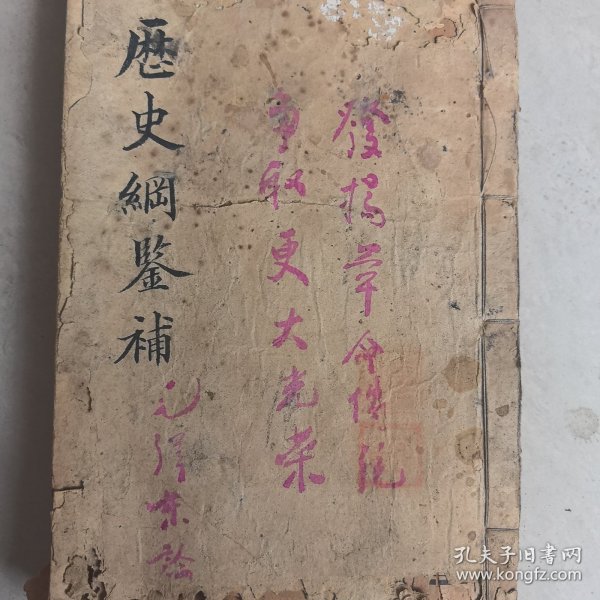 發揚革命傳統
争取更大光荣
毛澤東
歷史綱鑒補
孔夫子旧书网
www.kongfz.com